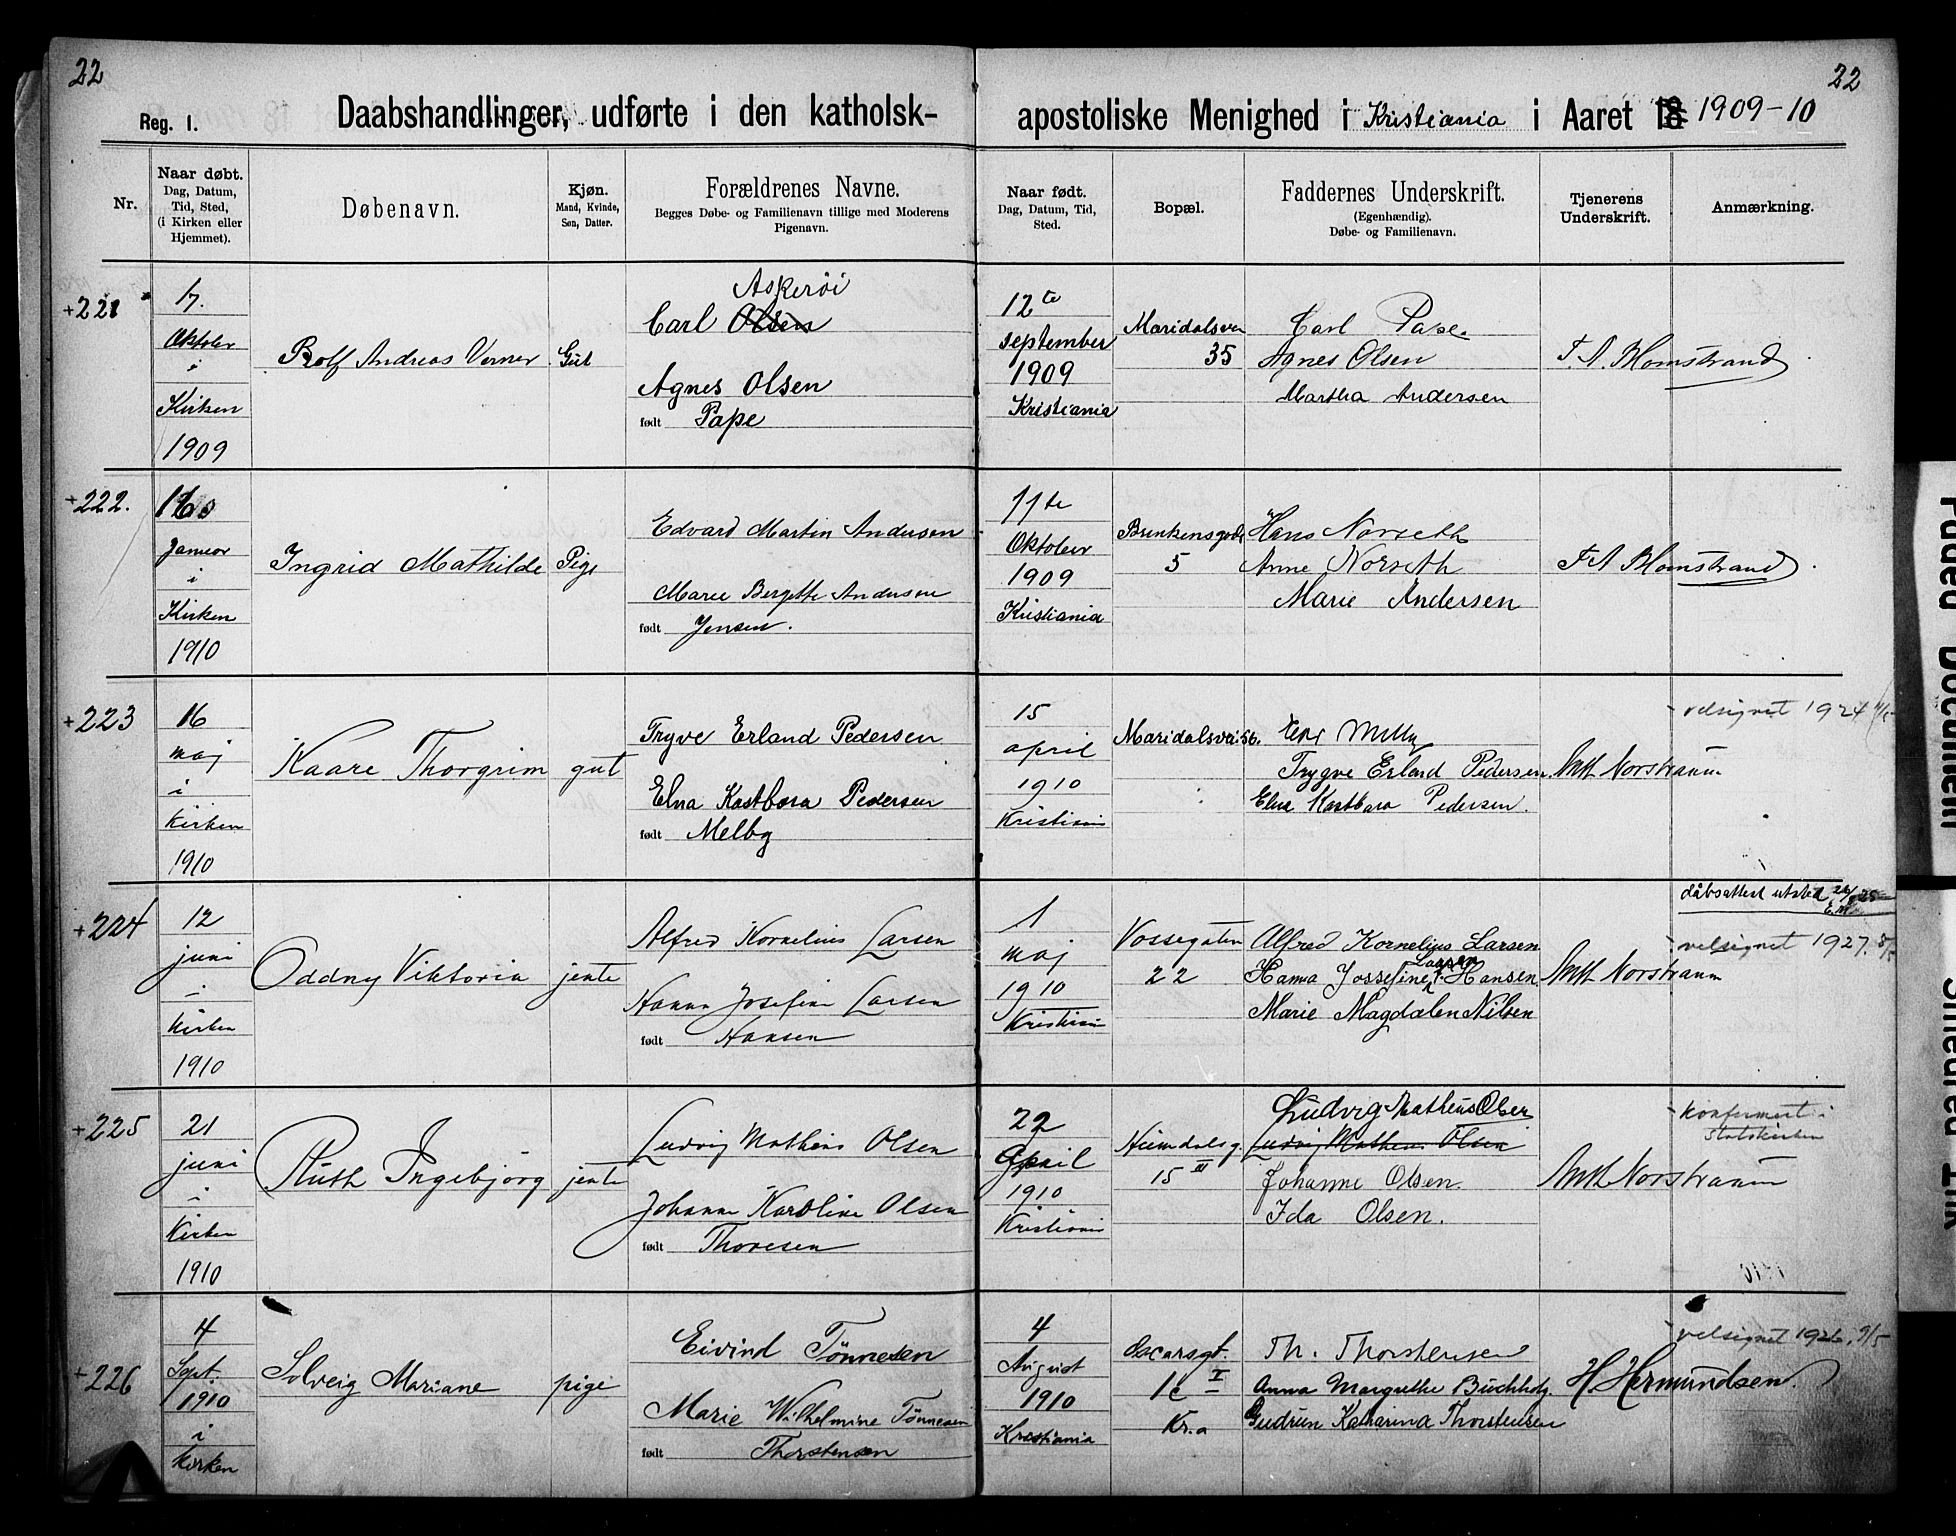 22
22
Reg. 1.
Daabshandlinger, udførte i den katholsk-apostoliske Menighed i Kristiania i Aaret 18 1909-10
Nr.
Naar døbt.
Dag, Datum,
Tid, Sted,
(i Kirken eller
Hjemmet).
Døbenavn.
Kjøn.
Mand, Kvinde,
Søn, Datter.
Forældrenes Navne.
Begges Døbe- og Familienavn tillige med Moderens
Pigenavn.
Naar født.
Dag, Datum, Tid,
Sted.
Bopæl.
Faddernes Underskrift.
(Egenhændig).
Døbe- og Familienavn.
Tjenerens
Underskrift.
Anmærkning.
+221
17.
Oktober
i
Kirken
1909
Rolf Andreas Verner
Gut
Askerøi
Carl Olsen
Agnes Olsen
født Pape
12te
september
1909
Kristiania
Maridalsvei
35
Carl Pape
Agnes Olsen
Martha Andersen
F. A. Blomstrand
+222.
16
Januar
i
Kirken
1910
Ingrid Mathilde
Pige
Edvard Martin Andersen
Marie Bergette Andersen
født Jensen.
11te
Oktober
1909
Kristiania
5
Hans Norseth
Anne Norseth
Marie Andersen
F A Blomstrand
+223
16
maj
i
Kirken
1910
Kaare Thorgrim
gut
Tryve Erland Pedersen
Elna Kastbora Pedersen
født Melby
15
april
1910
Kristiania
Maridalsvei 56.
Trygve Erland Pedersen
Elna Kastbara Pedersen.
Norstraum
velsignet 1924
+224
12
juni
i
Kirken
1910
Oddny Viktoria
jente
Alfred Kornelius Larsen
Hanna Josefine Larsen
født Hansen
1
maj
1910
Kristiania
Vossegaten
22
Alfred Kornelius Larsen
Larsen
Hanna Jossefine f. Hansen
Marie Magdalen Nilsen
Norstraum
dåbsattest utsted
velsignet 1927.
+225
21
juni
i
Kirken
1910
Ruth Ingebjörg
jente
Ludvig Matheus Olsen
Johanne Karoline Olsen
født Thoresen
22
April
1910
Kristiania
Heimdalsg.
15 III
Ludvig Matheus Olsen
Ludvig Matheus Olsen
Johanne Olsen.
Ida Olsen.
Norstraum
konfirmert i
statskirken
+226
4
Sept.
1910
i
Kirken
Solveig Mariane
pige
Eivind Tönnesen
Marie Wilhelmine Tönnesen
født Thorstensen
4
August
1910
Kristiania
Oscarsgt.
Kr.a
Th. Thorstensen
Anna Margrethe Buchholz
Gudrun Katharina Thorstensen
H. Hermundsen.
velsignet 1926, 9/5
Faded Document
Smeared Ink